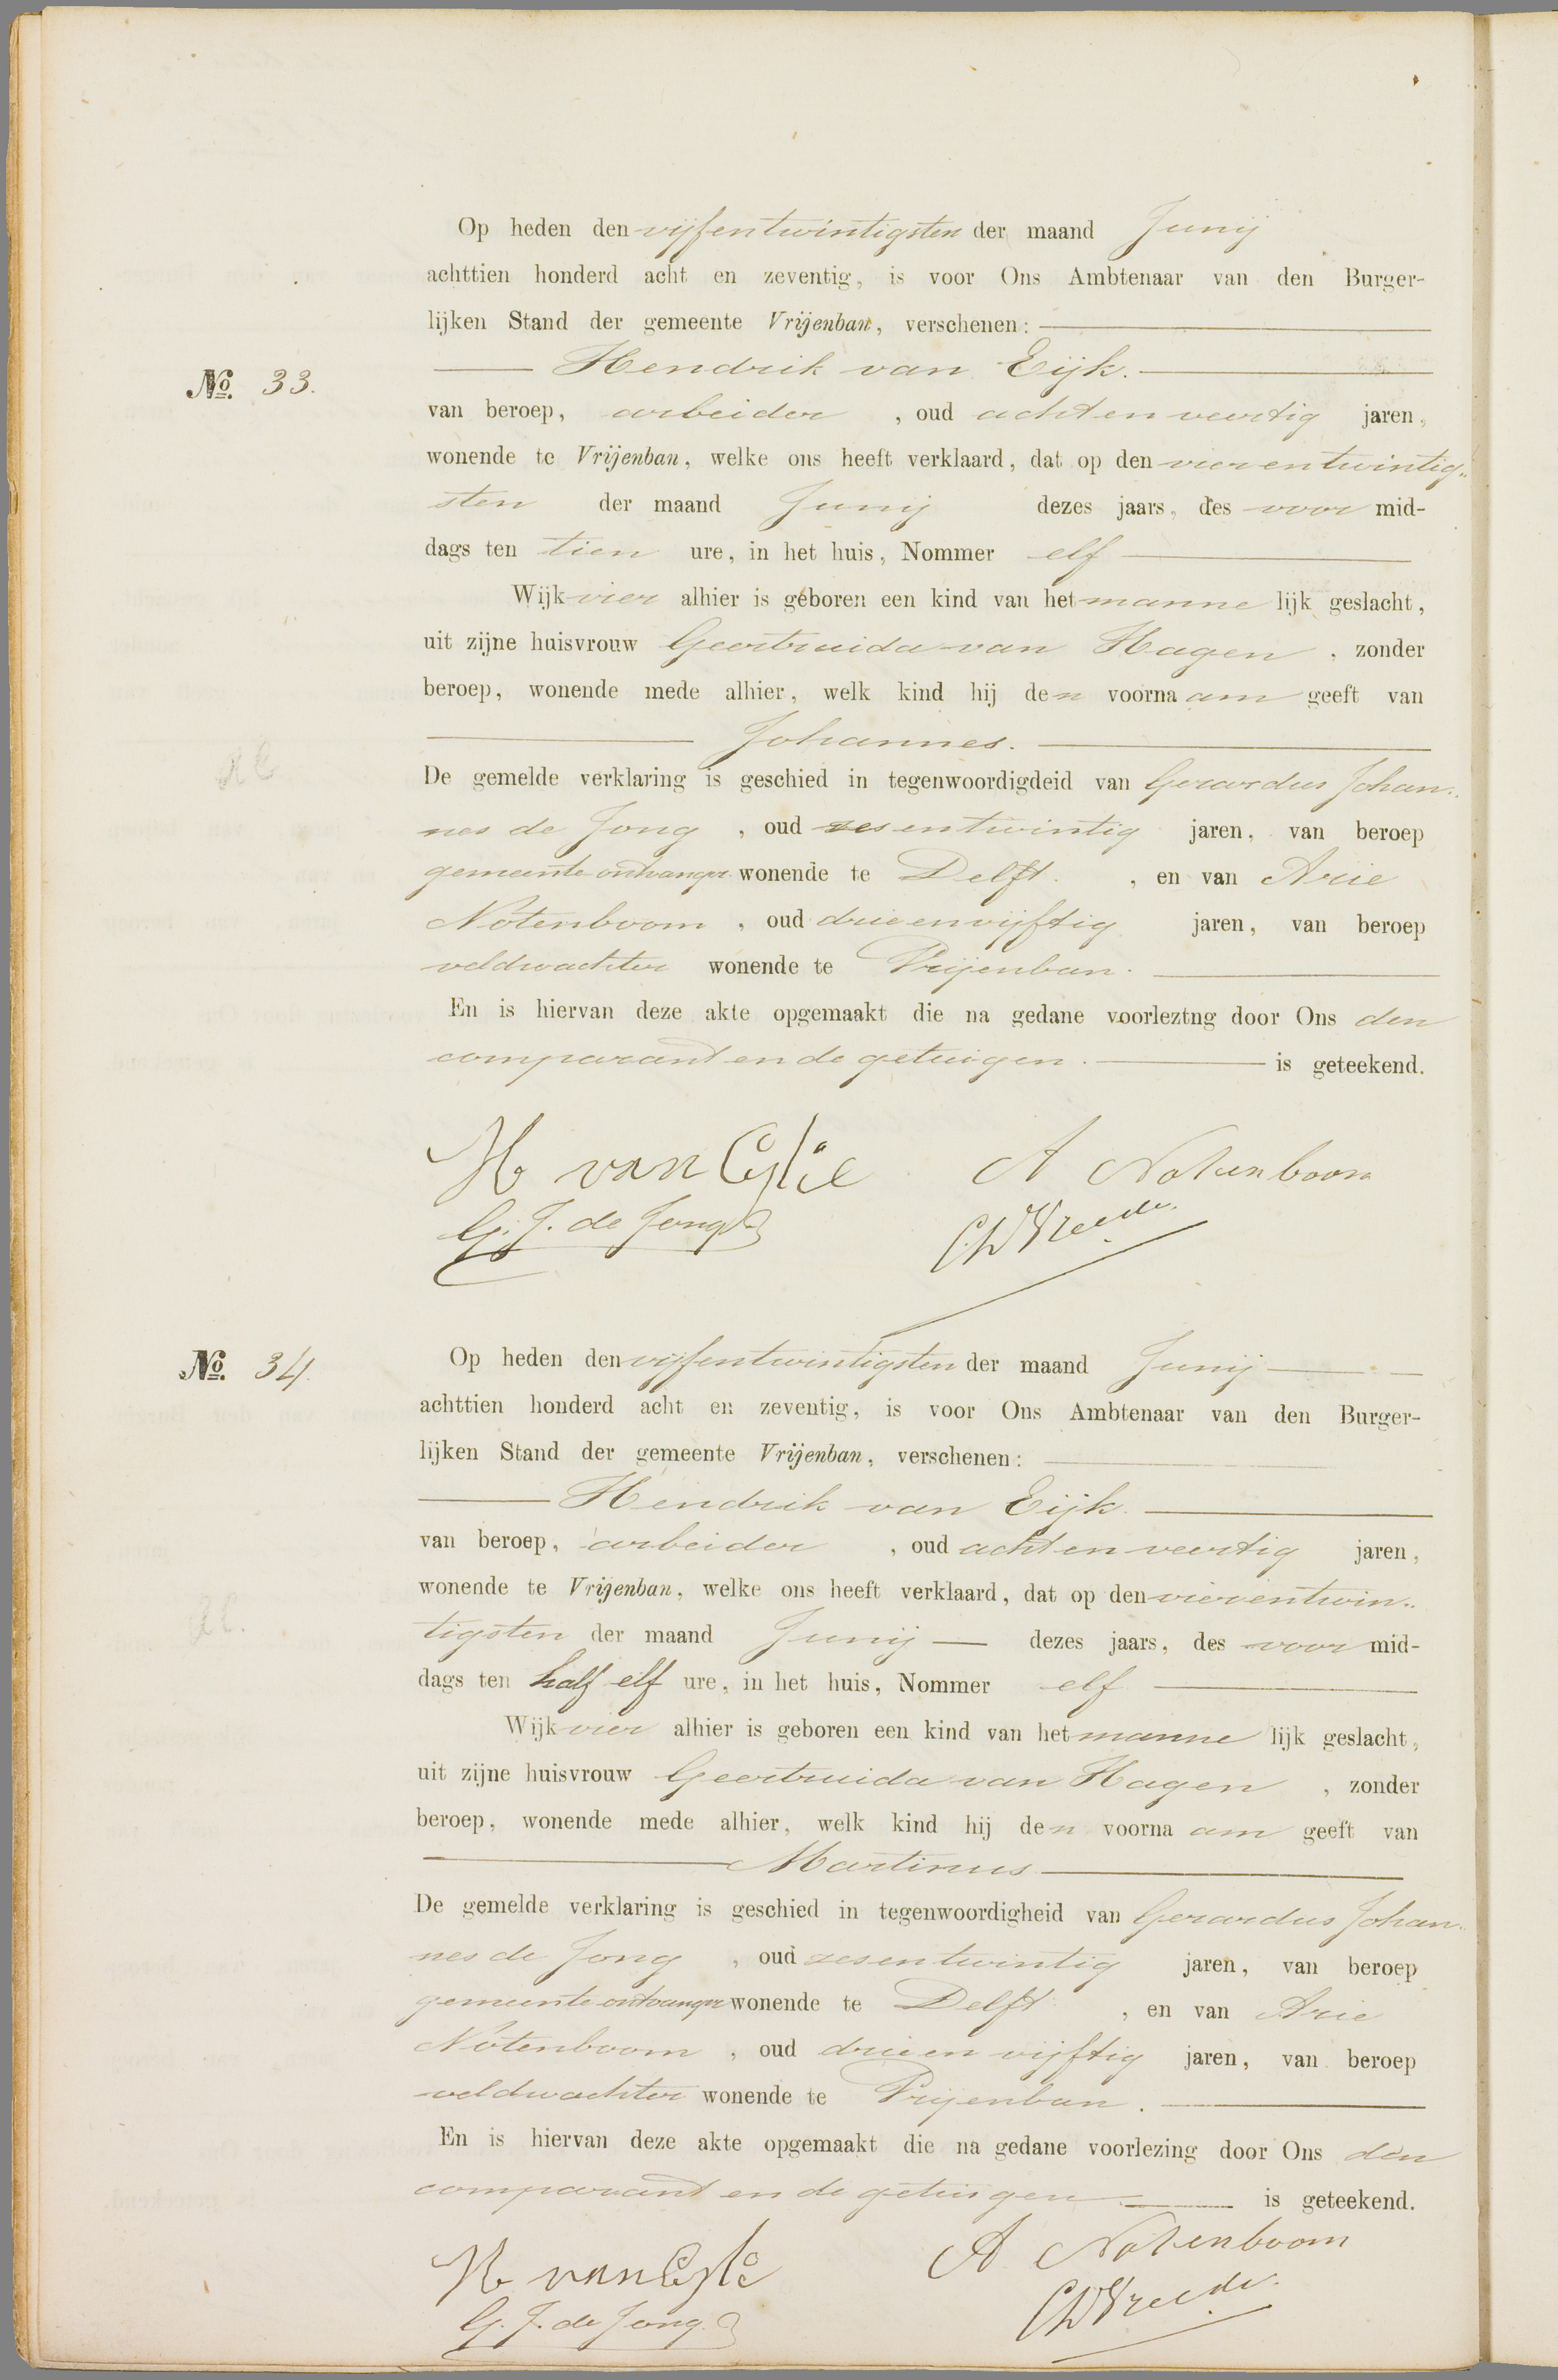 Op heden den vijfentwintigsten der maand Junij
achttien honderd acht en zeventig, is voor Ons Ambtenaar van den Burger-
lijken Stand der gemeente Vrijenban, verschenen:
Hendrik van Eijk.
No. 33.
van beroep, arbeider, oud achtenveertig jaren,
wonende te Vrijenban, welke ons heeft verklaard, dat op den vierentwintig„
sten der maand Junij dezes jaars, des voor mid-
dags ten tien ure, in het huis, Nommer elf
Wijk vier alhier is geboren een kind van het manne lijk geslacht,
uit zijne huisvrouw Geertruida van Hagen, zonder
beroep, wonende mede alhier, welk kind hij den voorna am geeft van
Johannes.
De gemelde verklaring is geschied in tegenwoordigdeid van Gerardus Johan„
nes de Jong, oud zesentwintig jaren, van beroep
gemeente ontvanger wonende te Delft, en van Arie
Notenboom, oud drieenvijftig jaren, van beroep
veldwachter wonende te Vrijenban.
En is hiervan deze akte opgemaakt die na gedane voorleztng door Ons den
comparant en de getuigen. is geteekend.
H van A Notenboom
G. J. de Jong
No. 34.
Op heden den vijfentwintigsten der maand Junij
achttien honderd acht en zeventig, is voor Ons Ambtenaar van den Burger-
lijken Stand der gemeente Vrijenban, verschenen:
Hendrik van Eijk.
van beroep, arbeider, oud achtenveertig jaren,
wonende te Vrijenban, welke ons heeft verklaard, dat op den vierentwin„
tigsten der maand Junij dezes jaars, des voor mid-
dags ten half elf ure, in het huis, Nommer elf
Wijk vier alhier is geboren een kind van het manne lijk geslacht,
uit zijne huisvrouw Geertruida van Hagen, zonder
beroep, wonende mede alhier, welk kind hij den voorna am geeft van
Martinus
De gemelde verklaring is geschied in tegenwoordigheid van Gerardus Johan„
nes de Jong, oud zesentwintig jaren, van beroep
gemeente ontvanger wonende te Delft, en van Arie
Notenboom, oud drieenvijftig jaren, van beroep
veldwachter wonende te Vrijenban.
En is hiervan deze akte opgemaakt die na gedane voorlezing door Ons den
comparant en de getuigen is geteekend.
H van A Notenboom
G. J. de Jong